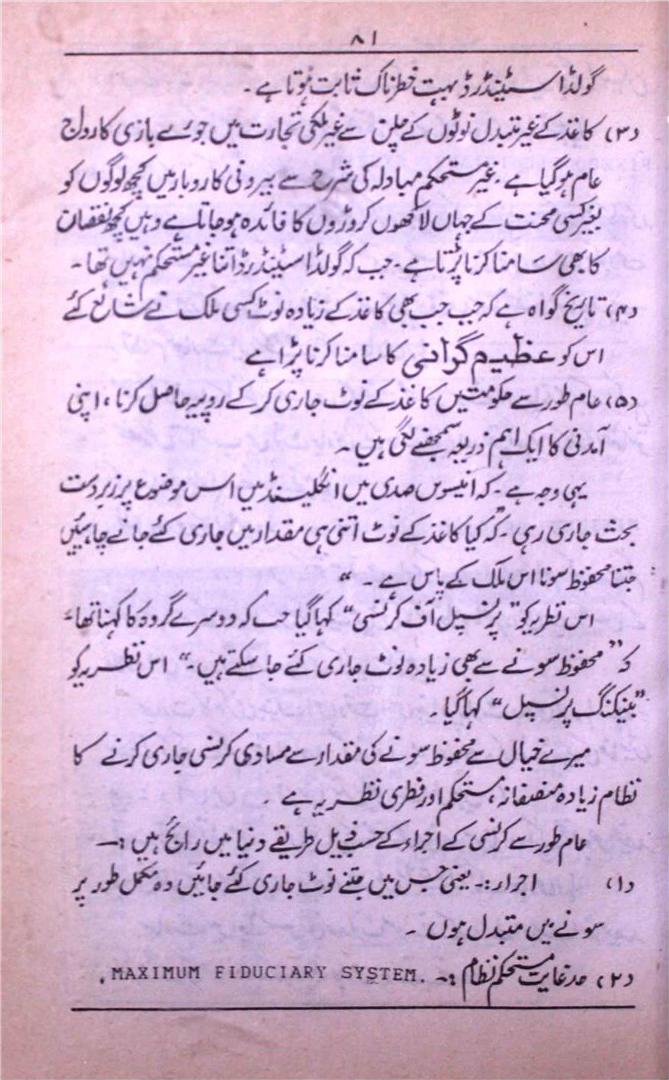 ۸۱
گولڈ اسٹینڈرڈ بہت خطرناک ثابت ہوتا ہے۔
(۳) کاغذ کے غیر متبدل نوٹوں کے چلن سے غیر ملکی تجارت میں جوئے بازی کا رواج
عام ہو گیا ہے۔ غیر مستحکم مبادلہ کی شرح سے بیرونی کاروبار میں کچھ لوگوں کو
بغیر کسی محنت کے جہاں لاکھوں کروڑوں کا فائدہ ہو جاتا ہے وہیں کچھ نقصان
کا بھی سامنا کرنا پڑتا ہے۔ جب کہ گولڈ اسٹینڈرڈ اتنا غیر مستحکم نہیں تھا۔
(۴) تاریخ گواہ ہے کہ جب جب بھی کاغذ کے زیادہ نوٹ کسی ملک نے شائع کئے
اس کو عظیم گرانی کا سامنا کرنا پڑا ہے
(۵) عام طور سے حکومتیں کاغذ کے نوٹ جاری کر کے روپیہ حاصل کرنا، اپنی
آمدنی کا ایک اہم ذریعہ سمجھنے لگتی ہیں۔
یہی وجہ ہے۔ کہ انیسویں صدی میں انگلینڈ میں اس موضوع پر زبردست
بحث جاری رہی۔ کہ "کیا کاغذ کے نوٹ اتنی ہی مقدار میں جاری کئے جانے چاہئیں
جتنا محفوظ سونا اس ملک کے پاس ہے۔"
اس نظریہ کو "پرنسپل آف کرنسی" کہا گیا جب کہ دوسرے گروہ کا کہنا تھا،
کہ "محفوظ سونے سے بھی زیادہ نوٹ جاری کئے جا سکتے ہیں۔" اس نظریہ کو
"بینکنگ پرنسپل" کہا گیا۔
میرے خیال سے محفوظ سونے کی مقدار سے مساوی کرنسی جاری کرنے کا
نظام زیادہ منصفانہ، مستحکم اور فطری نظریہ ہے۔
عام طور سے کرنسی کے اجراء کے حسب ذیل طریقے دنیا میں رائج ہیں:۔
(۱) اجراء:۔ یعنی جس میں جتنے نوٹ جاری کئے جائیں وہ مکمل طور پر
سونے میں متبدل ہوں۔
(۲) حد غایت مستحکم نظام:۔ MAXIMUM FIDUCIARY SYSTEM.